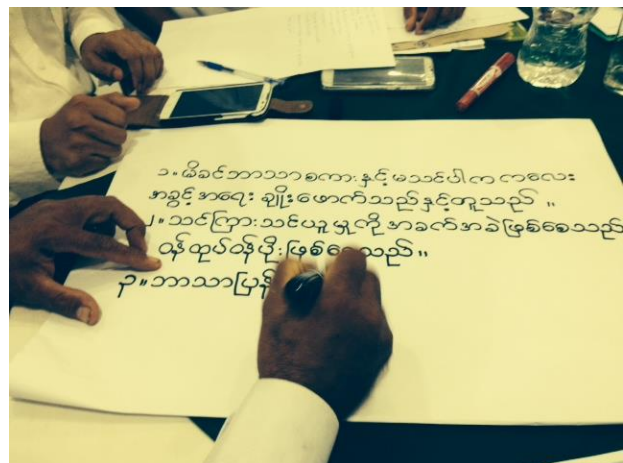 ၁။မိခင်ဘာသာစကားနှင့်မသင်ပါကကလေး
အခွင့်အရေးချိုးဖောက်သည်နှင့်တူသည်။
၂။သင်ကြားသင်ယူမှုကိုအခက်အခဲဖြစ်စေသည်
ဝန်ထုပ်ဝန်ပိုးဖြစ်စေသည်။
၃။ဘာသာပြန်